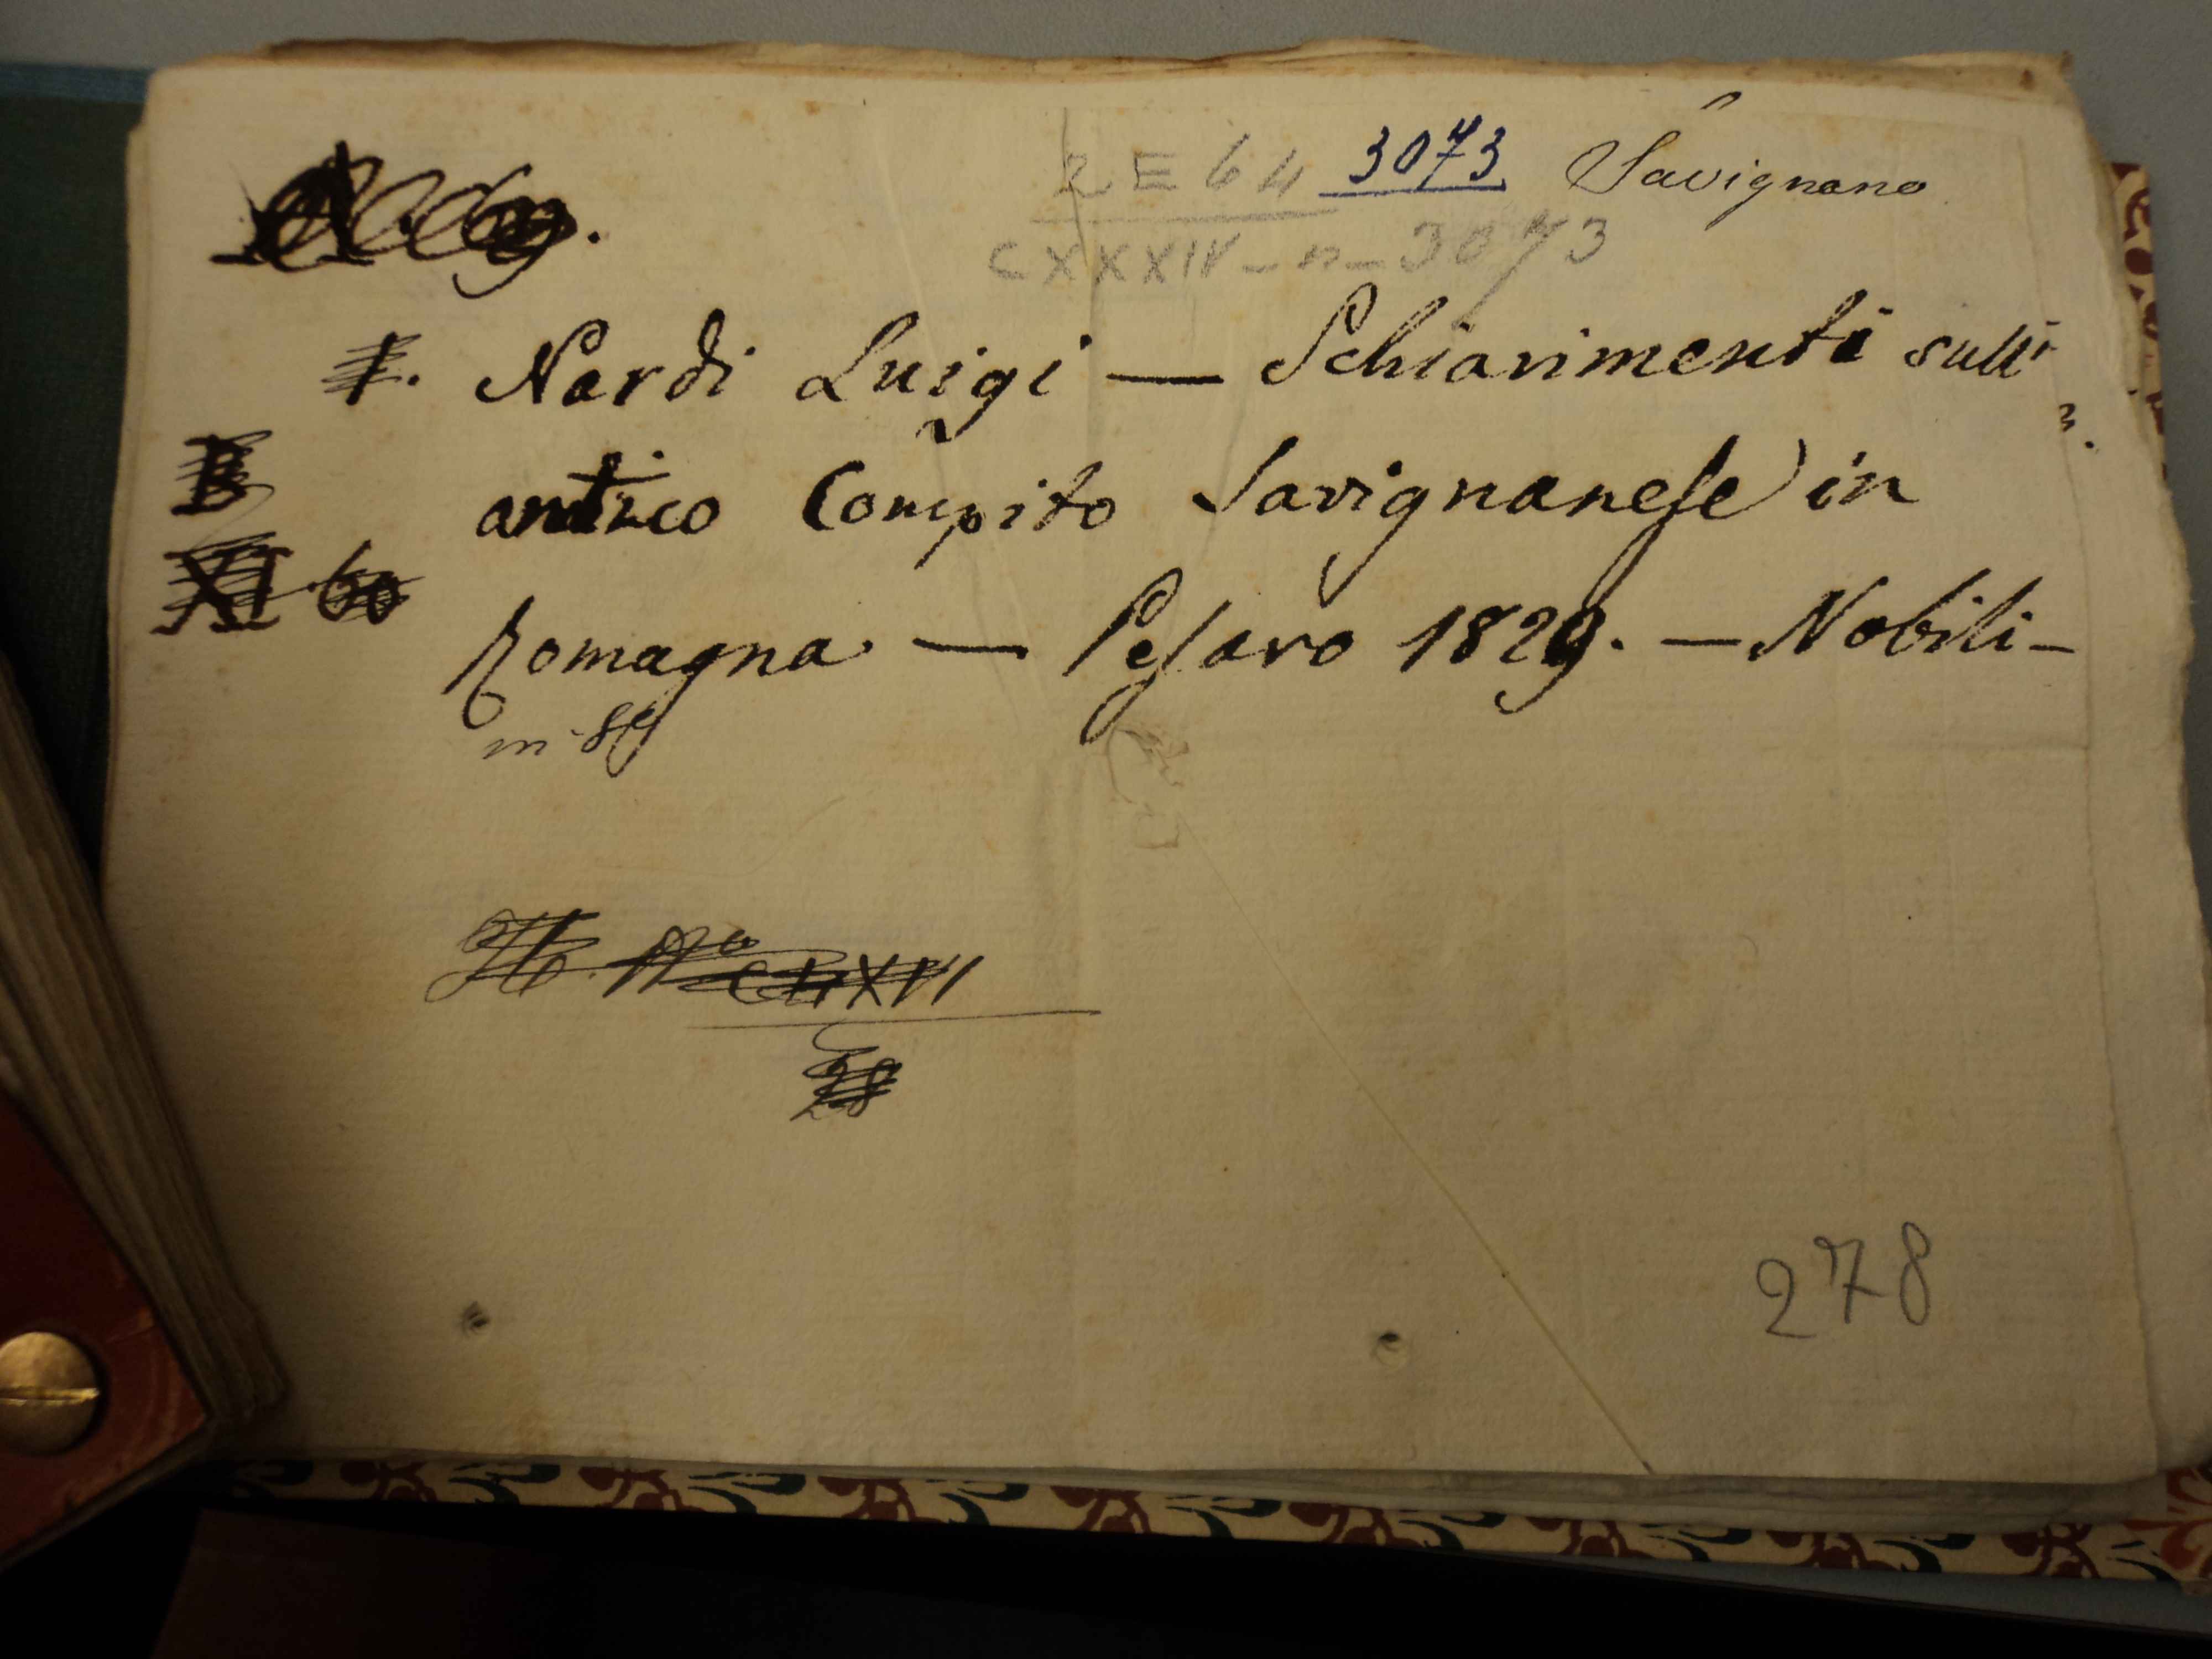 2 E 64 3073 Savignano
CXXXIV - n - 3073
Nardi Luigi — Schiarimenti sull'
antico Compito Savignanese in
Romagna. — Pesaro 1829. — Nobili -
in 8°
XI 60
278